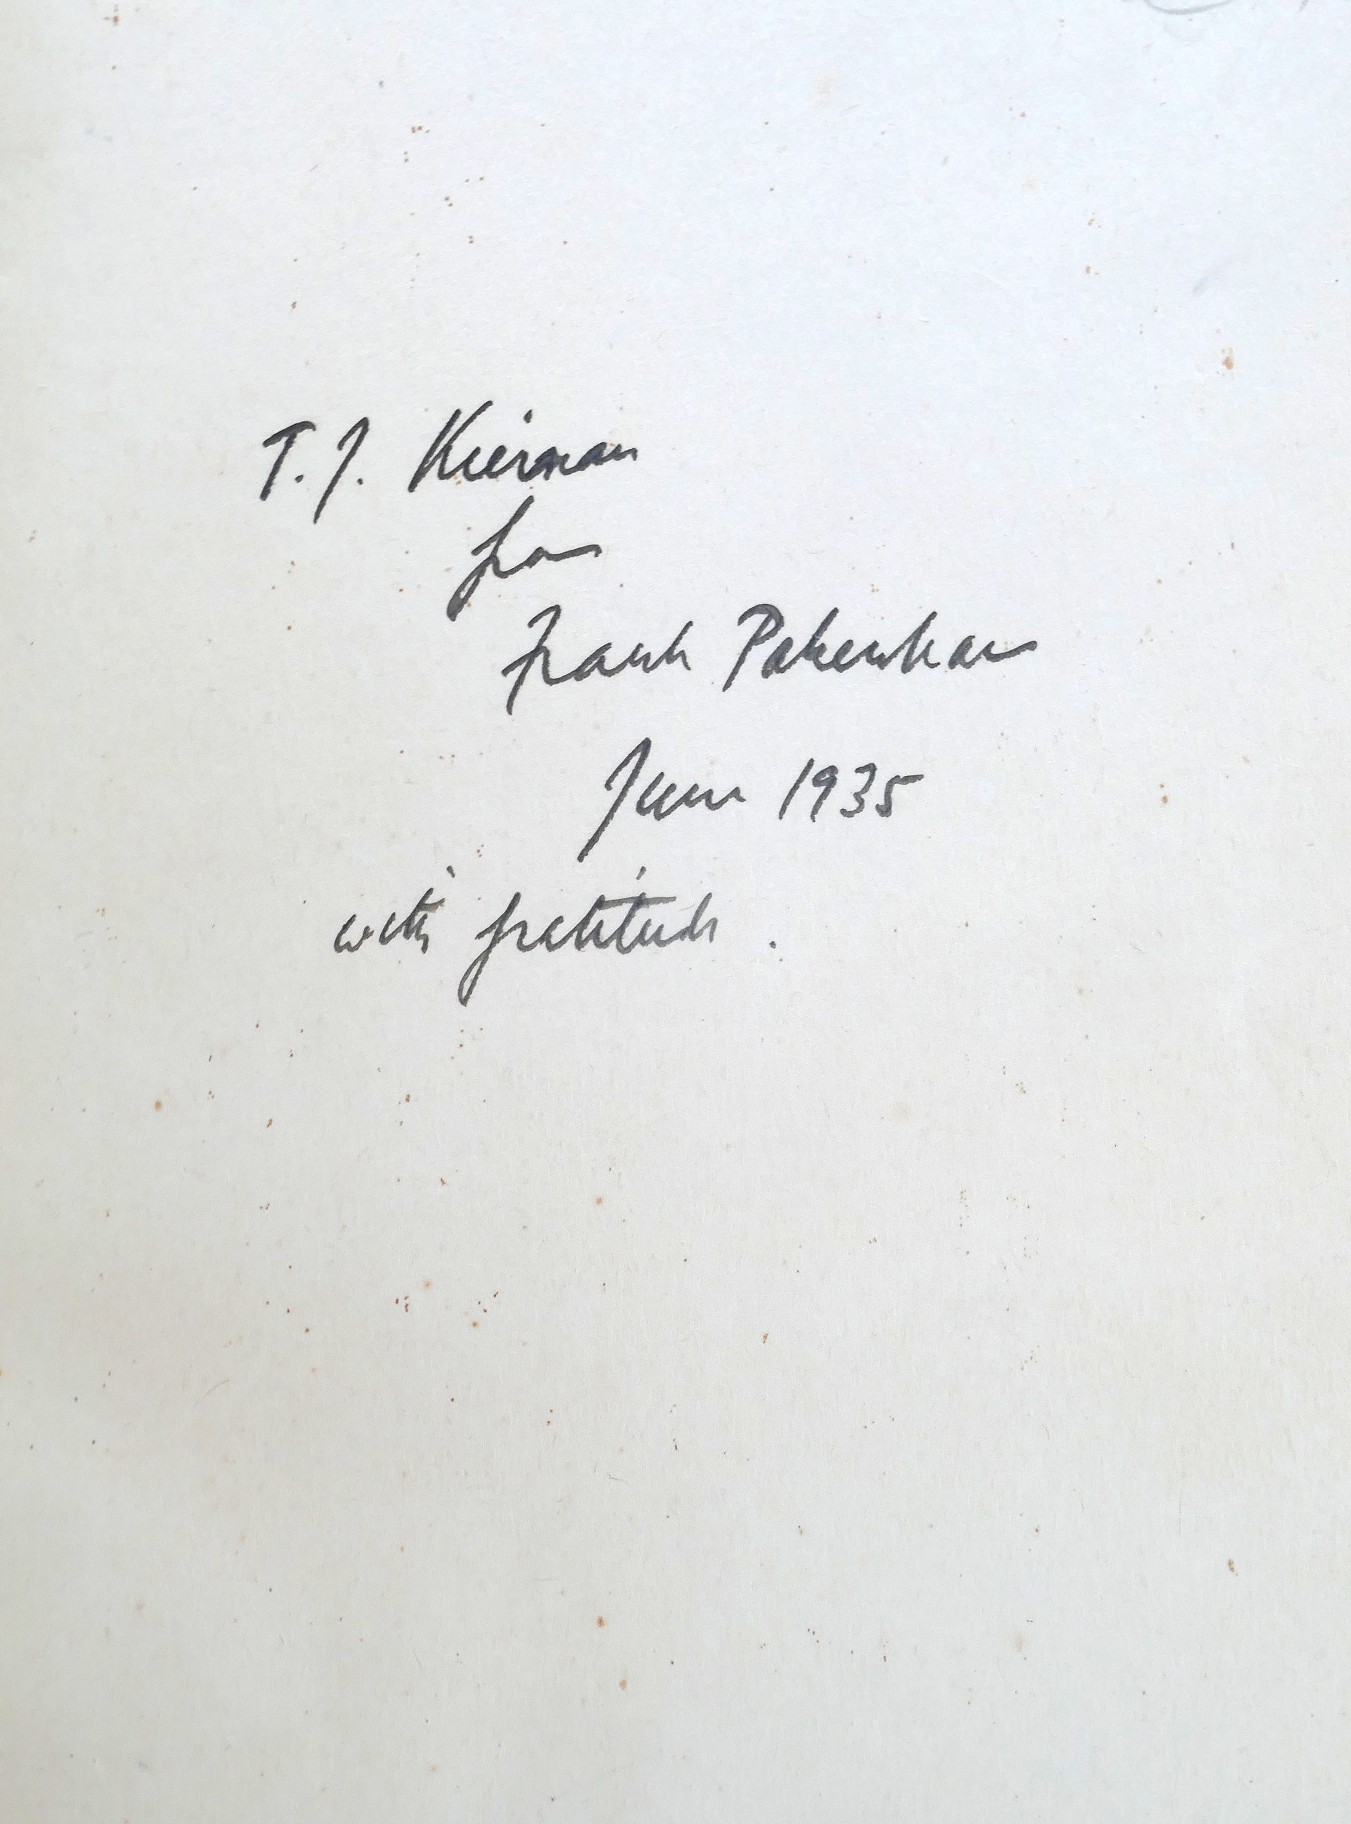 T. J. Kiernan
from
Frank Pakenham
June 1935
with gratitude.